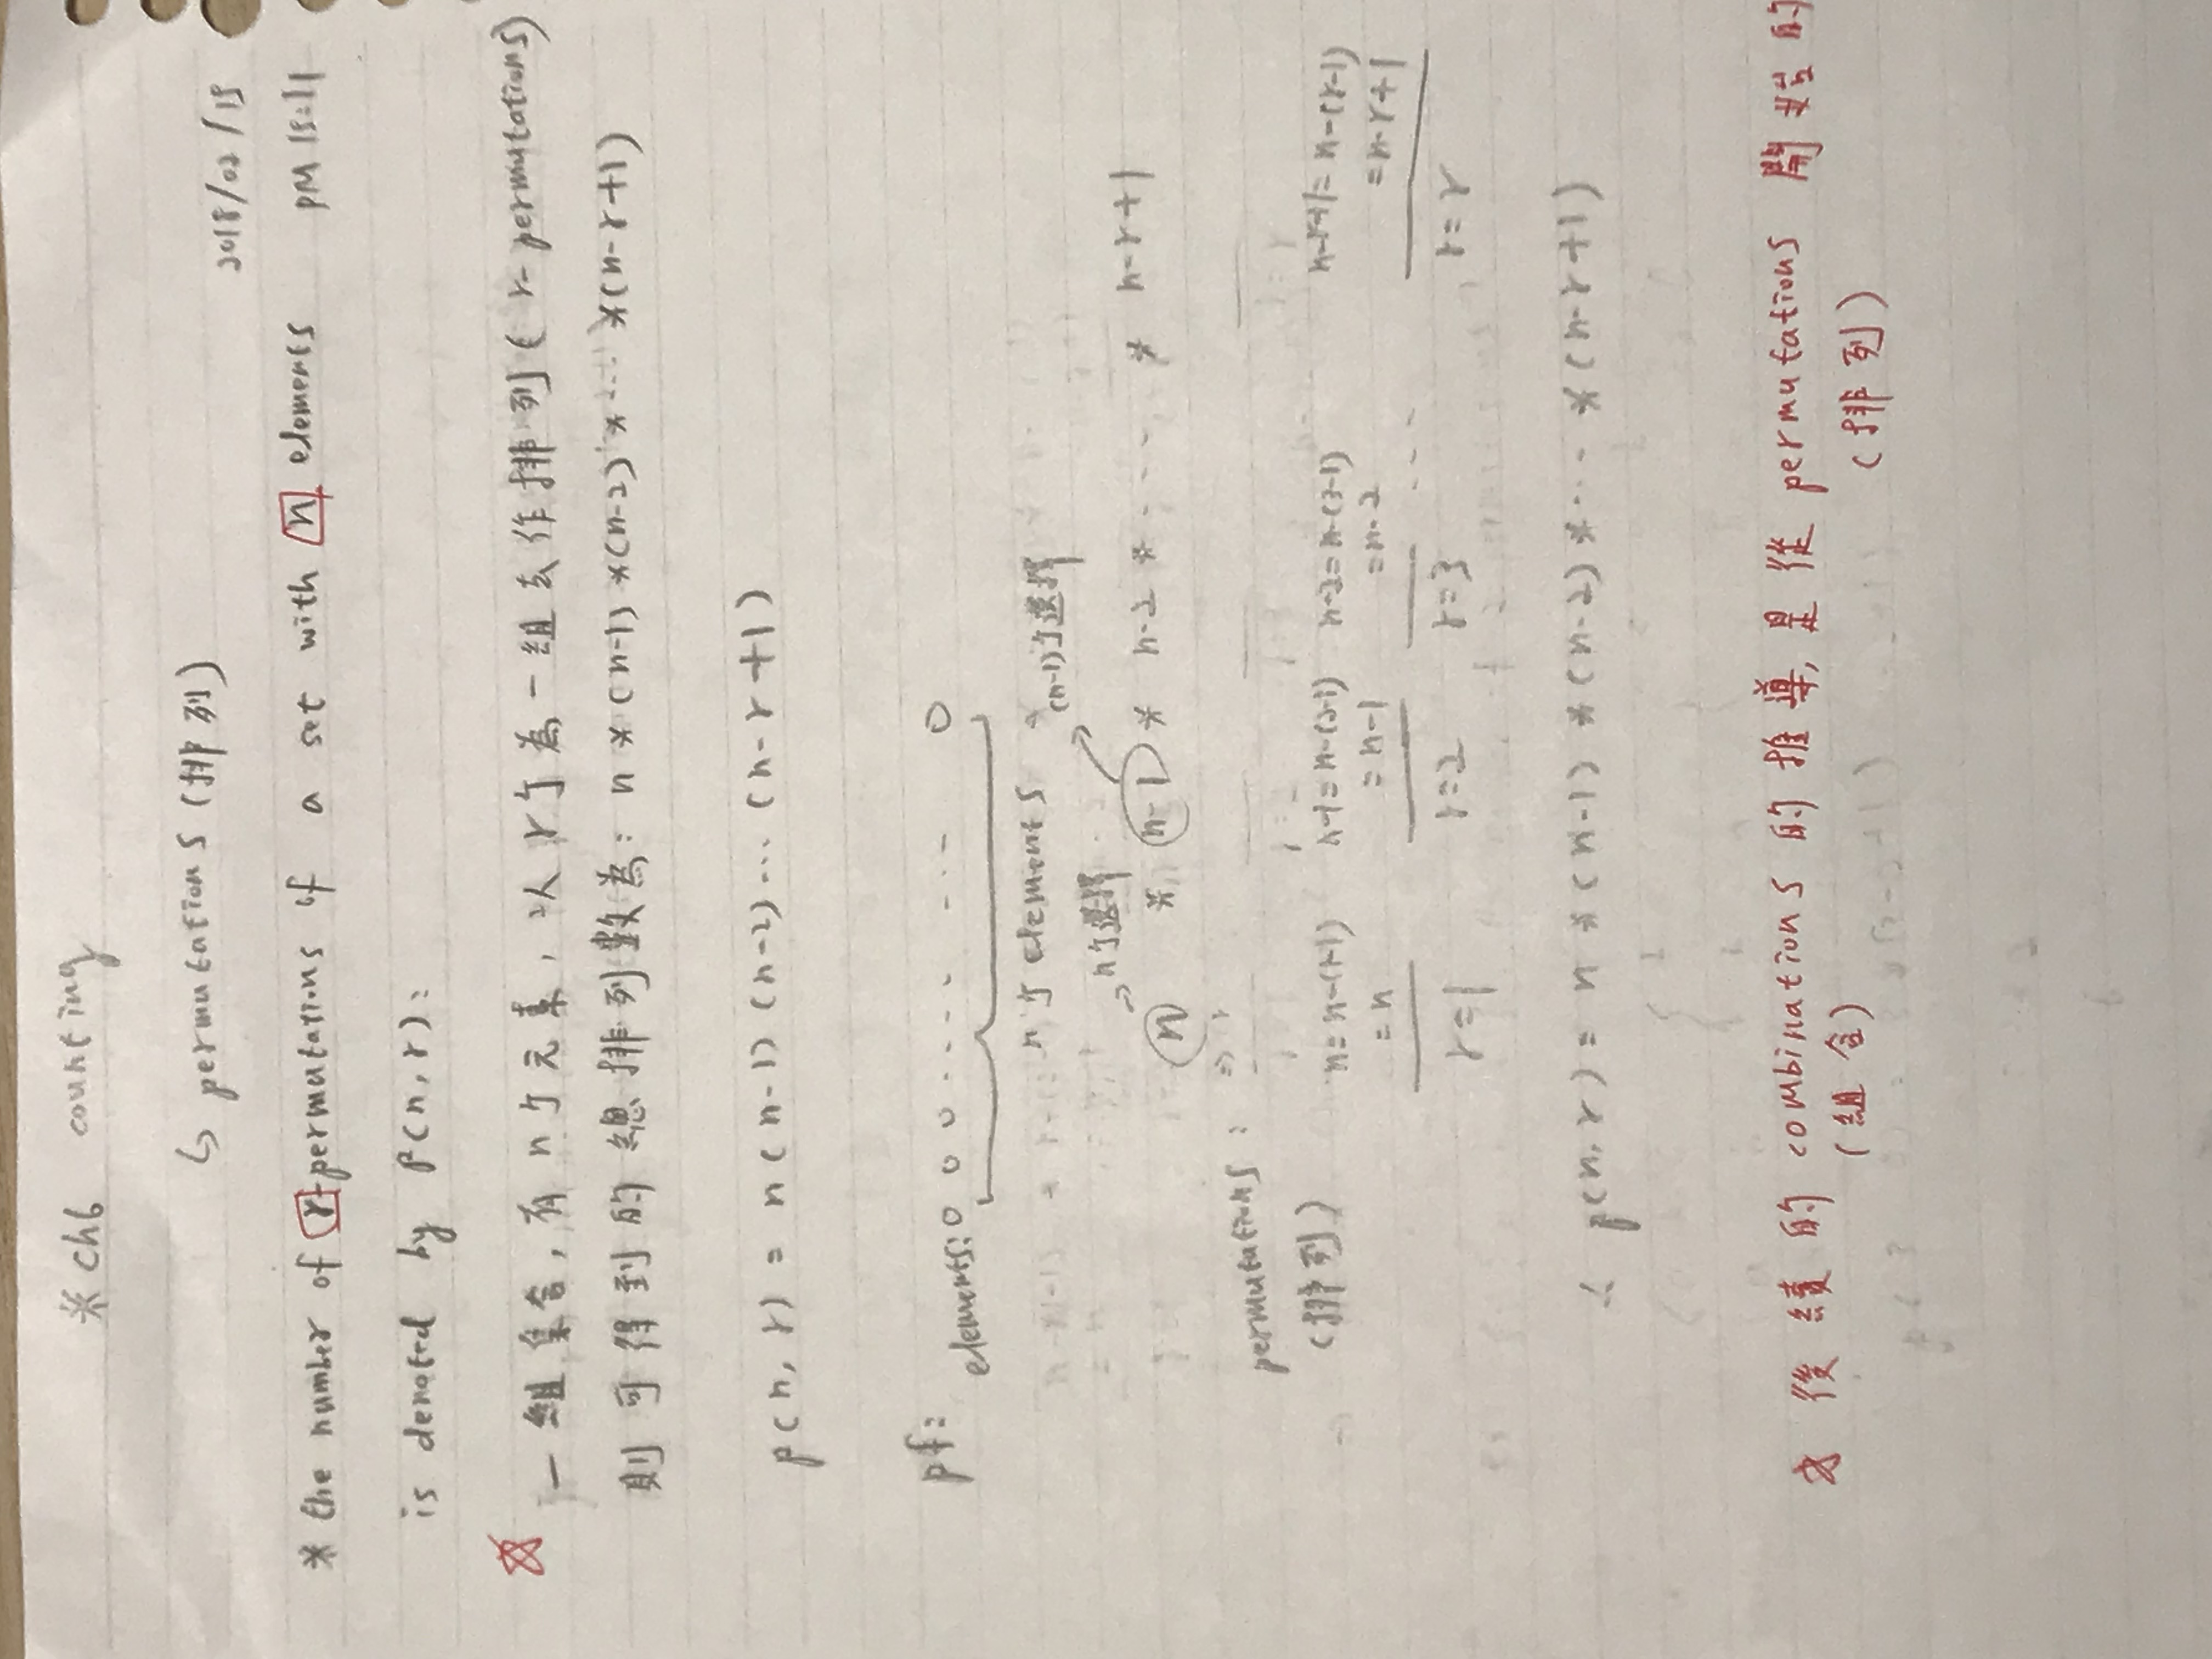 * Ch6 counting
↳ permutations (排列)
2018/02/15
* the number of r-permutations of a set with n elements PM 15:11
is denoted by P(n, r):
☆ 一組集合, 有 n 个元素, 以 r 个為一組去作排列 ( r- permutations)
則可得到的總排列數為: n * (n-1) * (n-2) * ... * (n-r+1)
p(n, r) = n(n-1)(n-2)... (n-r+1)
pf:
elements: o o o ..... ... o
n个 elements
(n-1)个選擇
→ n个選擇
n * n-1 * n-2 * .... * n-r+1
permutations :
(排列)
n=n-(1-1) n-1=n-(2-1) n-2=n-(3-1) n-r+1=n-(r-1)
=n =n-1 =n-2 =n-r+1
r=1 r=2 r=3 ... r=r
∴ p(n, r) = n * (n-1) * (n-2) * ... * (n-r+1)
☆ 後續的 combinations 的推導, 是從 permutations 開始的
(組合) (排列)